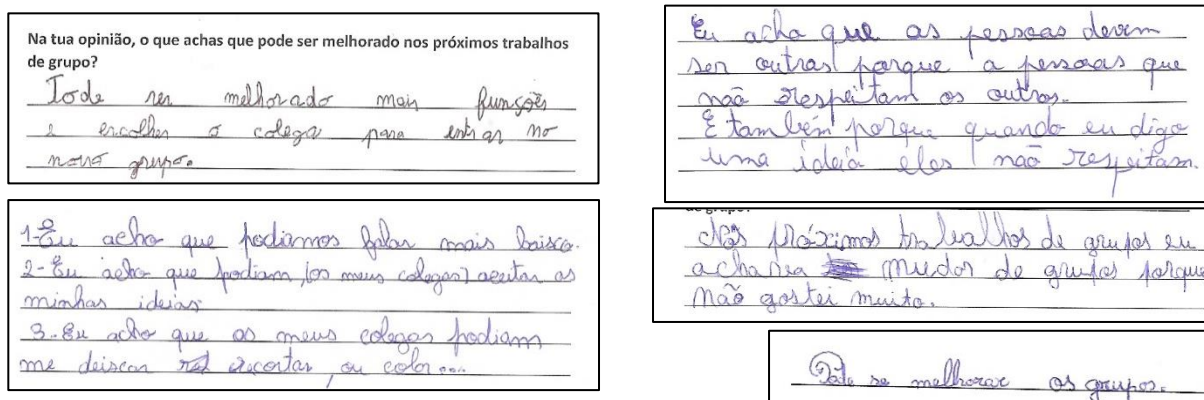 Na tua opinião, o que achas que pode ser melhorado nos próximos trabalhos
de grupo?
Pode ser melhorado mais funções
e encolher o colega para entrar no
novo grupo.
1-Eu acho que podiamos falar mais baisco.
2-Eu acho que podiam, (os meus colegas) aceitar as
minhas ideias.
3-Eu acho que os meus colegas podiam
me deiscar recortar, ou color...
Eu acho que as pessoas devem
ser outras porque a pessoas que
não respeitam os outros.
E também porque quando eu digo
uma ideia eles não respeitam.
de grupo?
Nos próximos trabalhos de grupos eu
acharia mudar de grupos porque
não gostei muito.
Pode se melhorar os grupos.